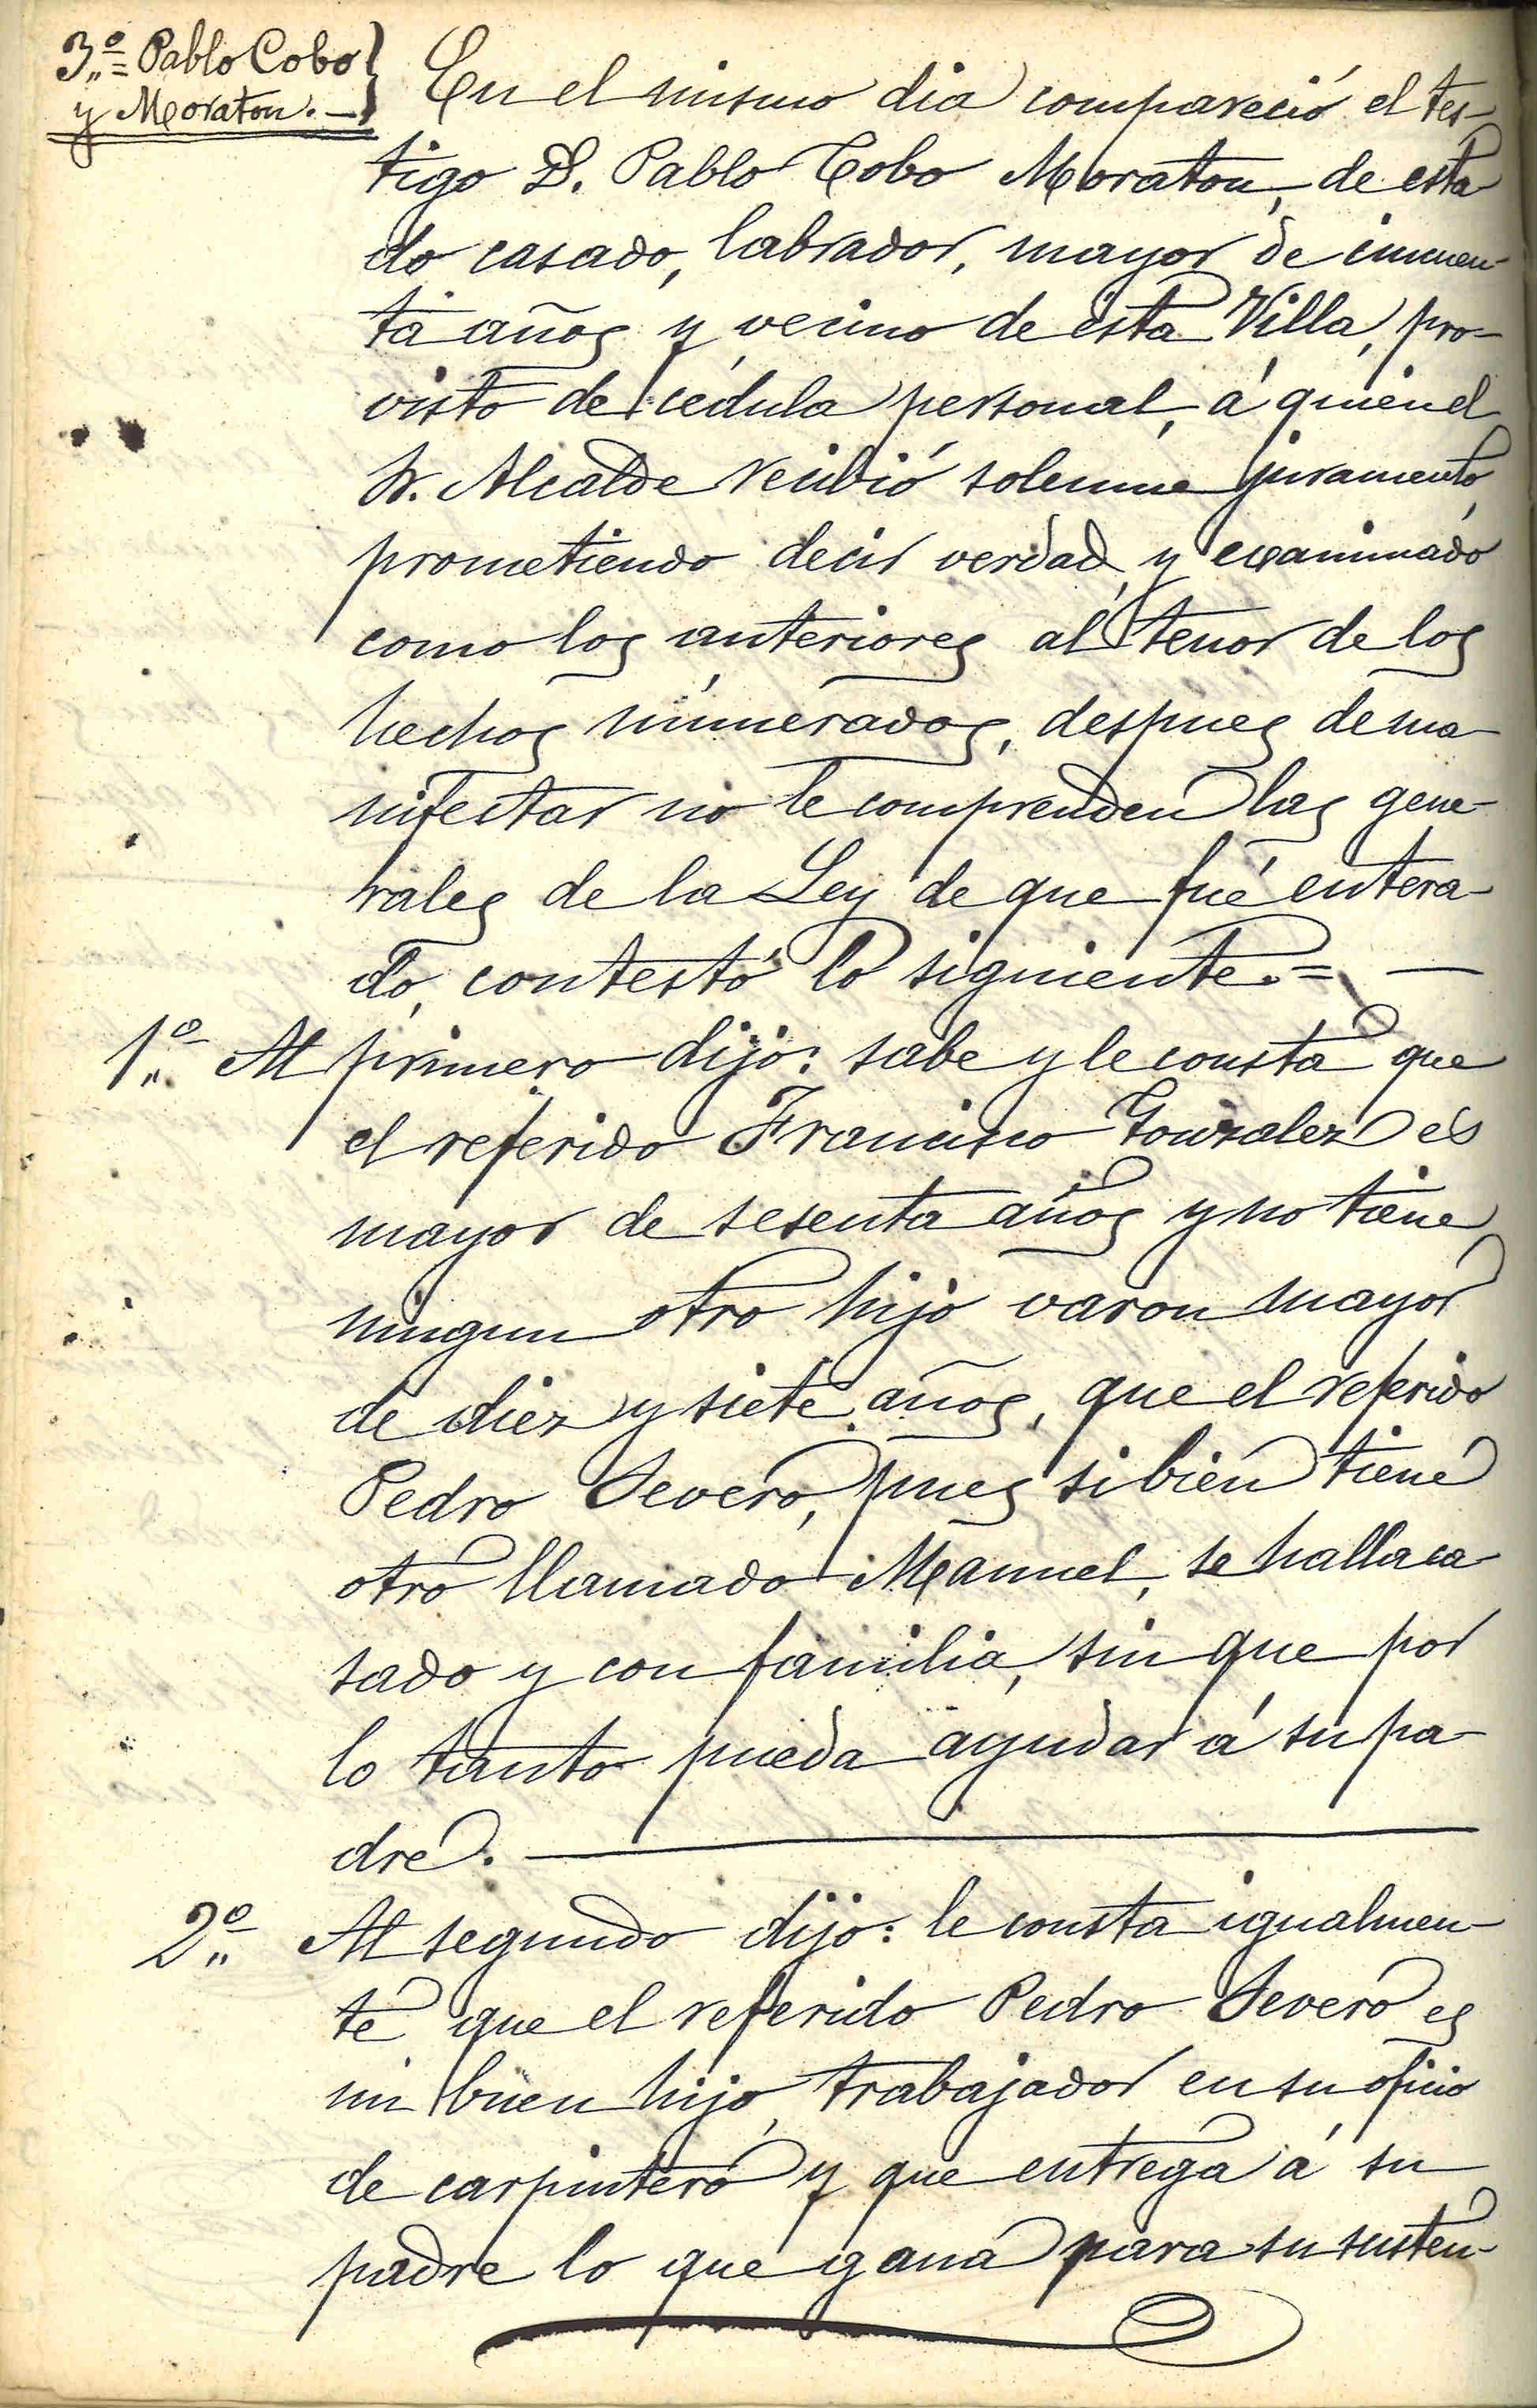 3.º = Pablo Cobo
y Moraton. —
En el mismo dia compareció el tes-
tigo D. Pablo Cobo Moraton, de esta
do casado, labrador, mayor de cincuen-
ta años y vecino de esta Villa, pro-
visto de cédula personal, á quien el
Sr. Alcalde recibió solemne juramento,
prometiendo decir verdad, y examinado
como los anteriores al tenor de los
hechos númerados, despues de ma-
nifestar no le comprenden las gene-
rales de la Ley de que fué entera-
do, contestó lo siguiente. = —
1.º Al primero dijo: sabe y le consta que
el referido Francisco Gonzalez es
mayor de sesenta años y no tiene
ningun otro hijo varon mayor
de diez y siete años, que el referido
Pedro Severo, pues si bien tiene
otro llamado Manuel, se halla ca
sado y con familia, sin que por
lo tanto pueda ayudar á su pa-
dre. —
2.º Al segundo dijo: le consta igualmen-
te que el referido Pedro Severo es
un buen hijo, trabajador en su oficio
de carpintero y que entrega á su
padre lo que gana para su susten-